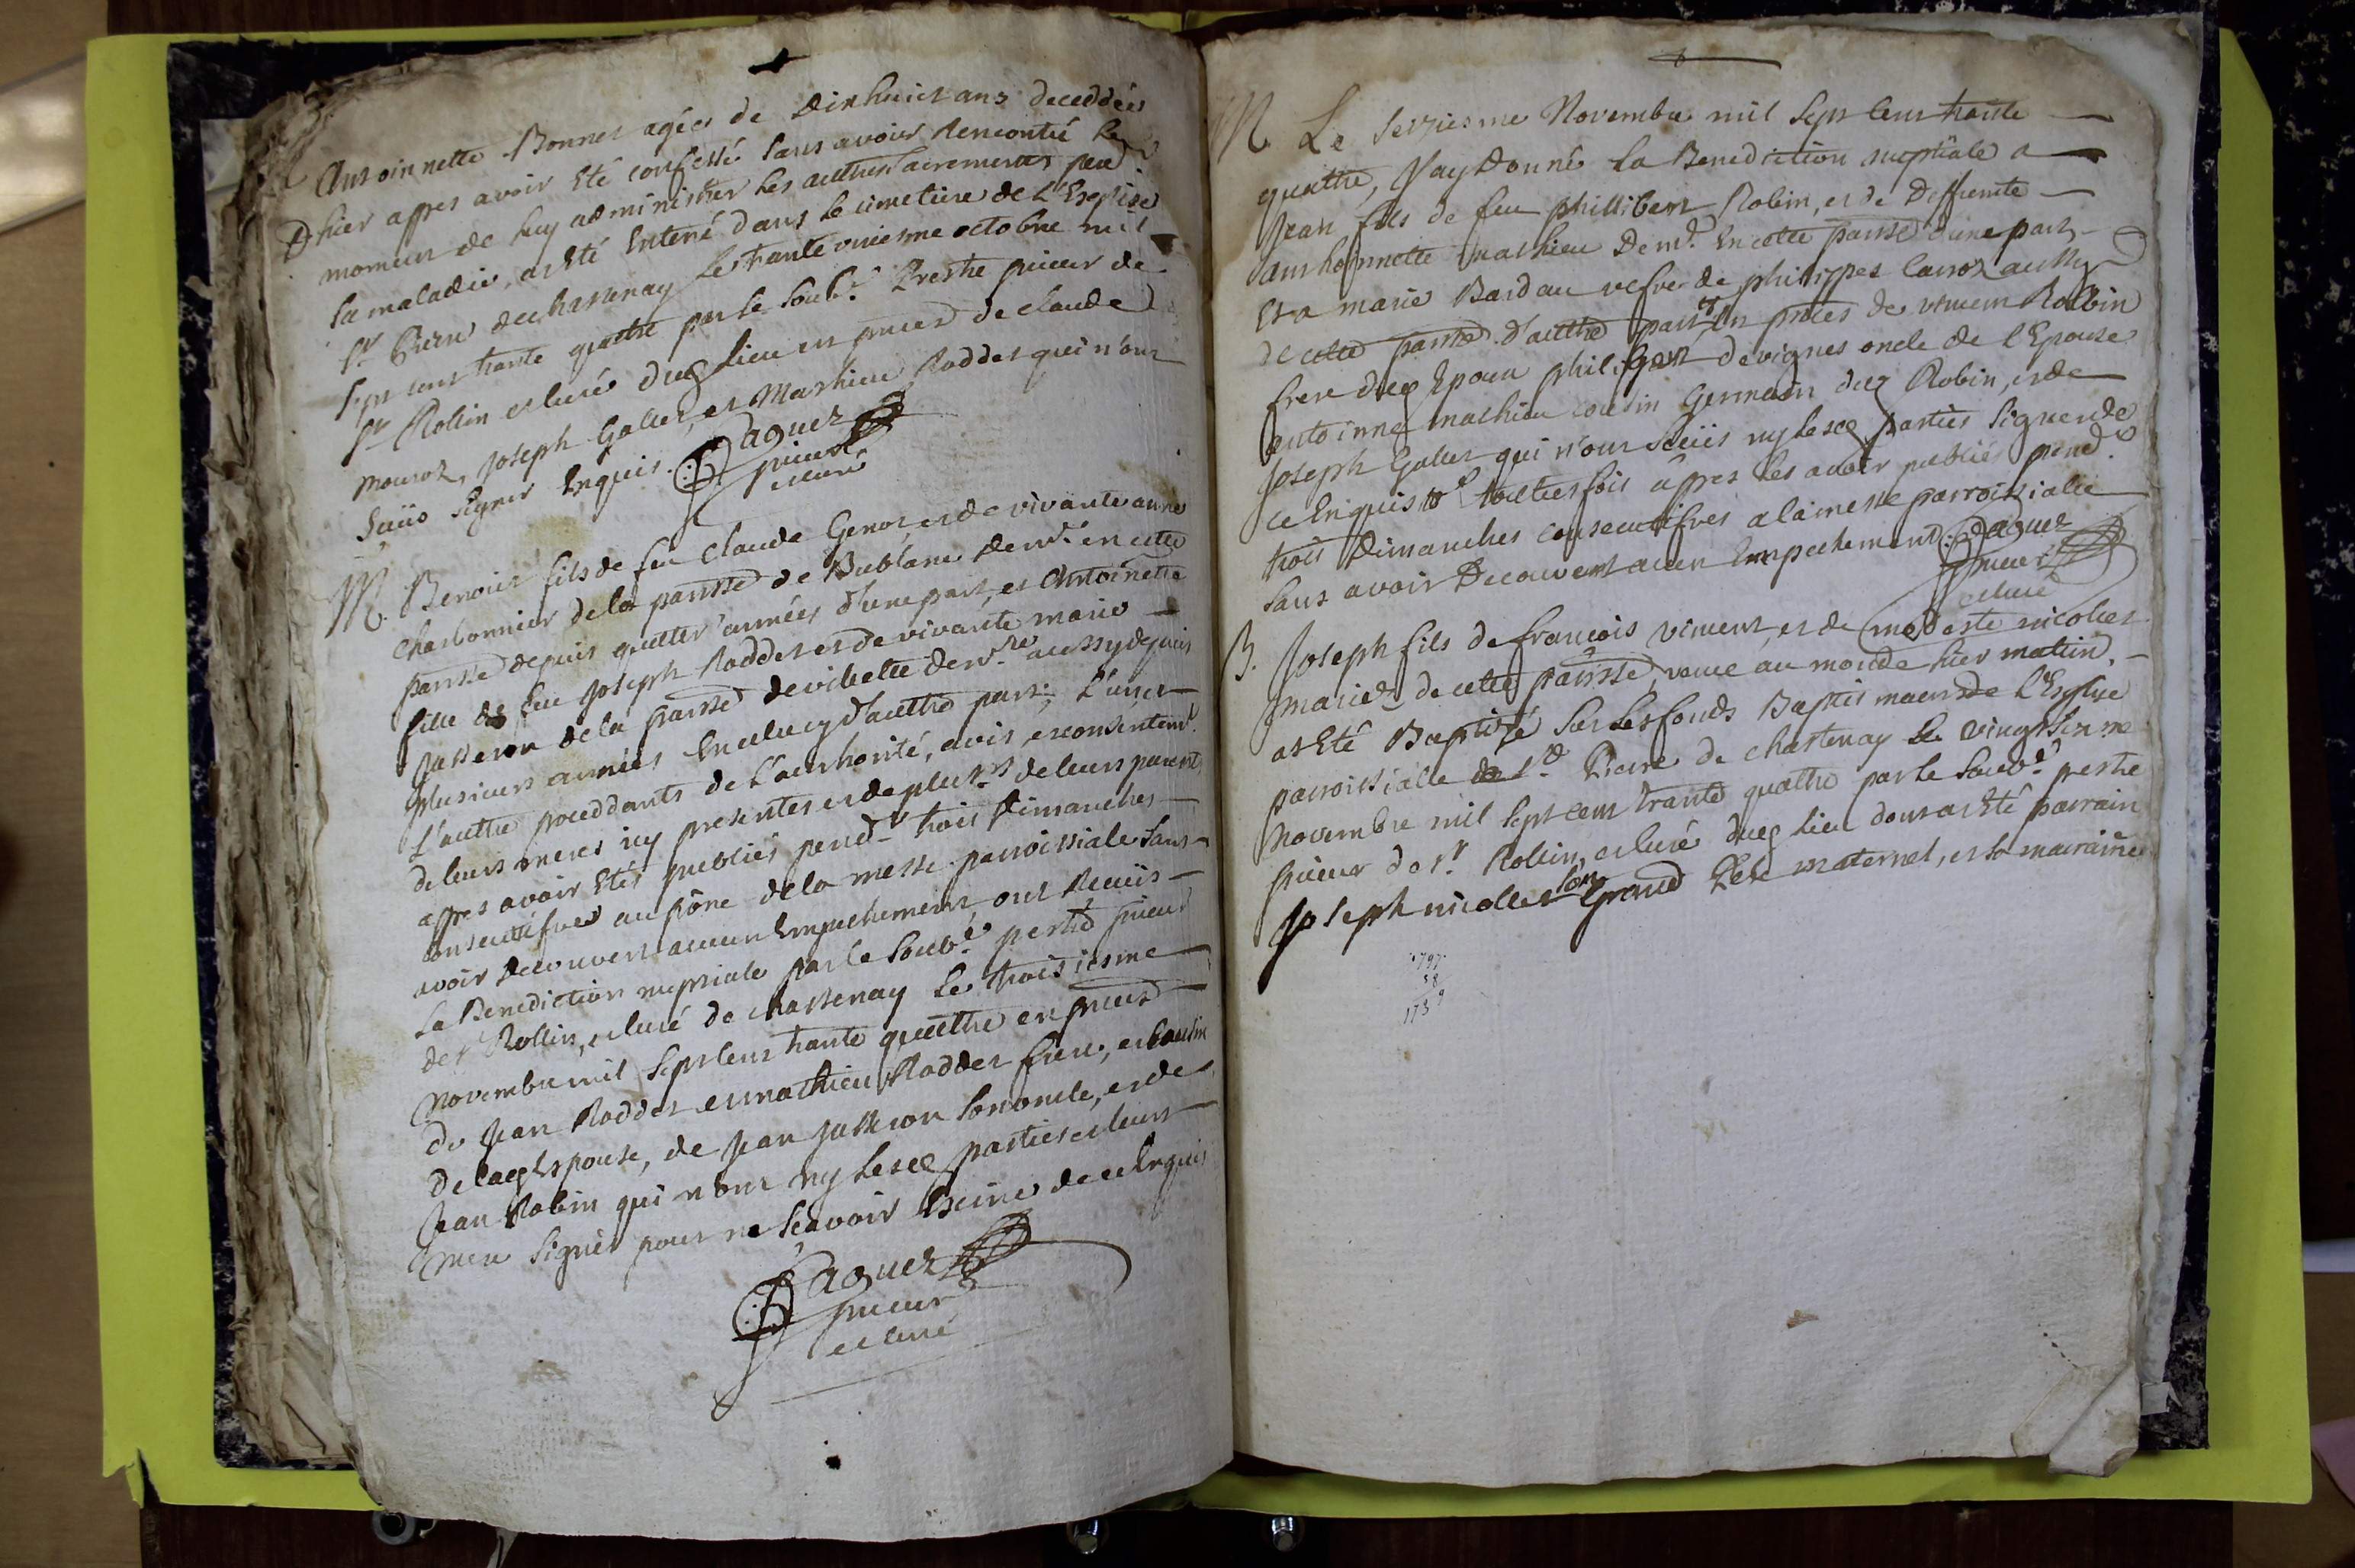 Antoinnette Bonnet agée de dixhuict ans deceddée
D hier appres avoir été confessé sans avoir rencontré le
moment de luy administrer les auttres sacrements pend.
sa maladie, at été enterré dans le cimetiere de l'Esglise
St Pierre de chastenay le trante uniesme octobre mil
sept cent trante quattre par le soub.é Prestre prieur de
St Rollin et curé dud. lieu en pnce de claude
mouroz, joseph Gallet, et Mathieu Roddet qui n'ont
sçüs signer enquis. Paguez
prieur
et curé
M. Benoist fils de feu Claude Genot, et de vivante anne
charbonnier de la parrsse de Bublane dem.t en cette
parrsse depuis quattre années d'une part, et Antoinette
fille de feu joseph Roddet et de vivante marie
jasseron de la parrsse de vilette dem.te aussy depuis
plusieurs années en celuy d'auttre part, L'un et
L'auttre proceddants de L'authorité, avis, et consentem.t
de leurs meres icy presentes et de plus.rs de leurs parents
appres avoir étés publiés pend.t trois dimanches
consecutifves au prône de la messe parroissiale sans
avoir decouvert aucun Empechement ont receüs
La Benediction nuptiale par le soub.é pestre prieur
de St Rollin, et curé de chastenay le troisiesme
novembre mil sept cent trante quattre en pnce
de jean Roddet et mathieu Roddet frere, et cousin
de lad. Espouse, de jean jasseron son oncle, et de
jean Robin qui n'ont ny lesd. parties et leurs
mere signer pour ne sçavoir Ecrire de ce Enquis
Paguez
prieur
et curé
M. Le seiziesme Novembre mil sept cent trante
quattre, j'ay donné la Benediction nuptiale a
jean fils de feu phillibert Robin, et de deffunte
anthoinnette mathieu dem.t en cette parrsse d'une part
Et a marie Bardau vefve de philippes carroz aussy
de cette parrsse d'auttre part, et en pnces de vincent Robin
frere dud. Epoux philibert devignes oncle de l'Epouse
antoinne mathieu cousin germain dud. Robin, et de
joseph Gallet qui n'ont sceüs ny lesd. parties signer de
ce enquis touttesfois appres les avoir publiés pend.t
trois dimanches consecutifves a la messe parroissialle
sans avoir decouvert aucun Empechement. Paguez
prieur
et curé
B. Joseph fils de françois vincent, et de modeste nicollet
mariéz de cette parrsse, venue au monde hier matin,
at été Baptizé sur les fonds Baptismaux de L'Esglise
parroissialle de St. Pierre de chastenay le vingt sixme
Novembre mil sept cent trante quattre par le soub.é pestre
prieur de St. Rollin, et curé dud. lieu dont at été parrain
joseph nicollet son grand Pere maternel, et la marraine
1797
58
1739